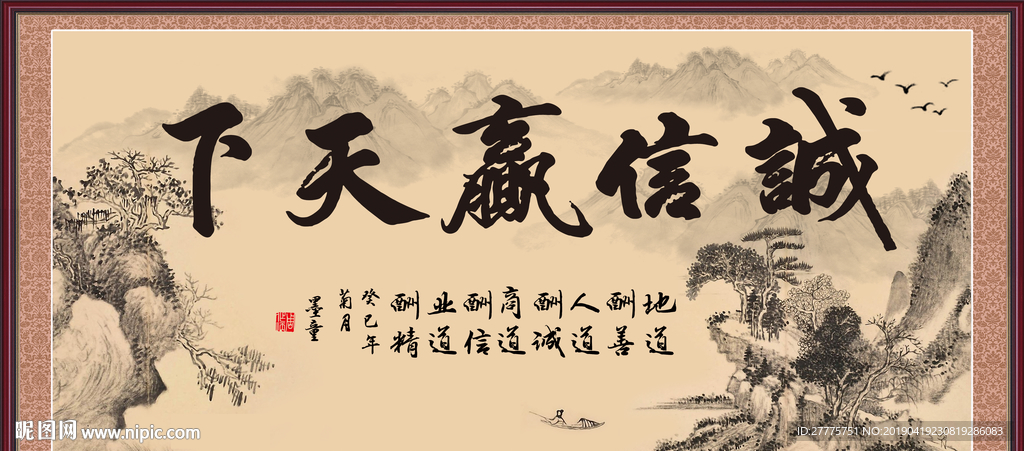 誠信贏天下
地道
酬善
人道
酬诚
商道
酬信
业道
酬精
癸巳年
菊月
墨童
昵图网 www.nipic.com
ID:27775751 NO:20190419230819286083